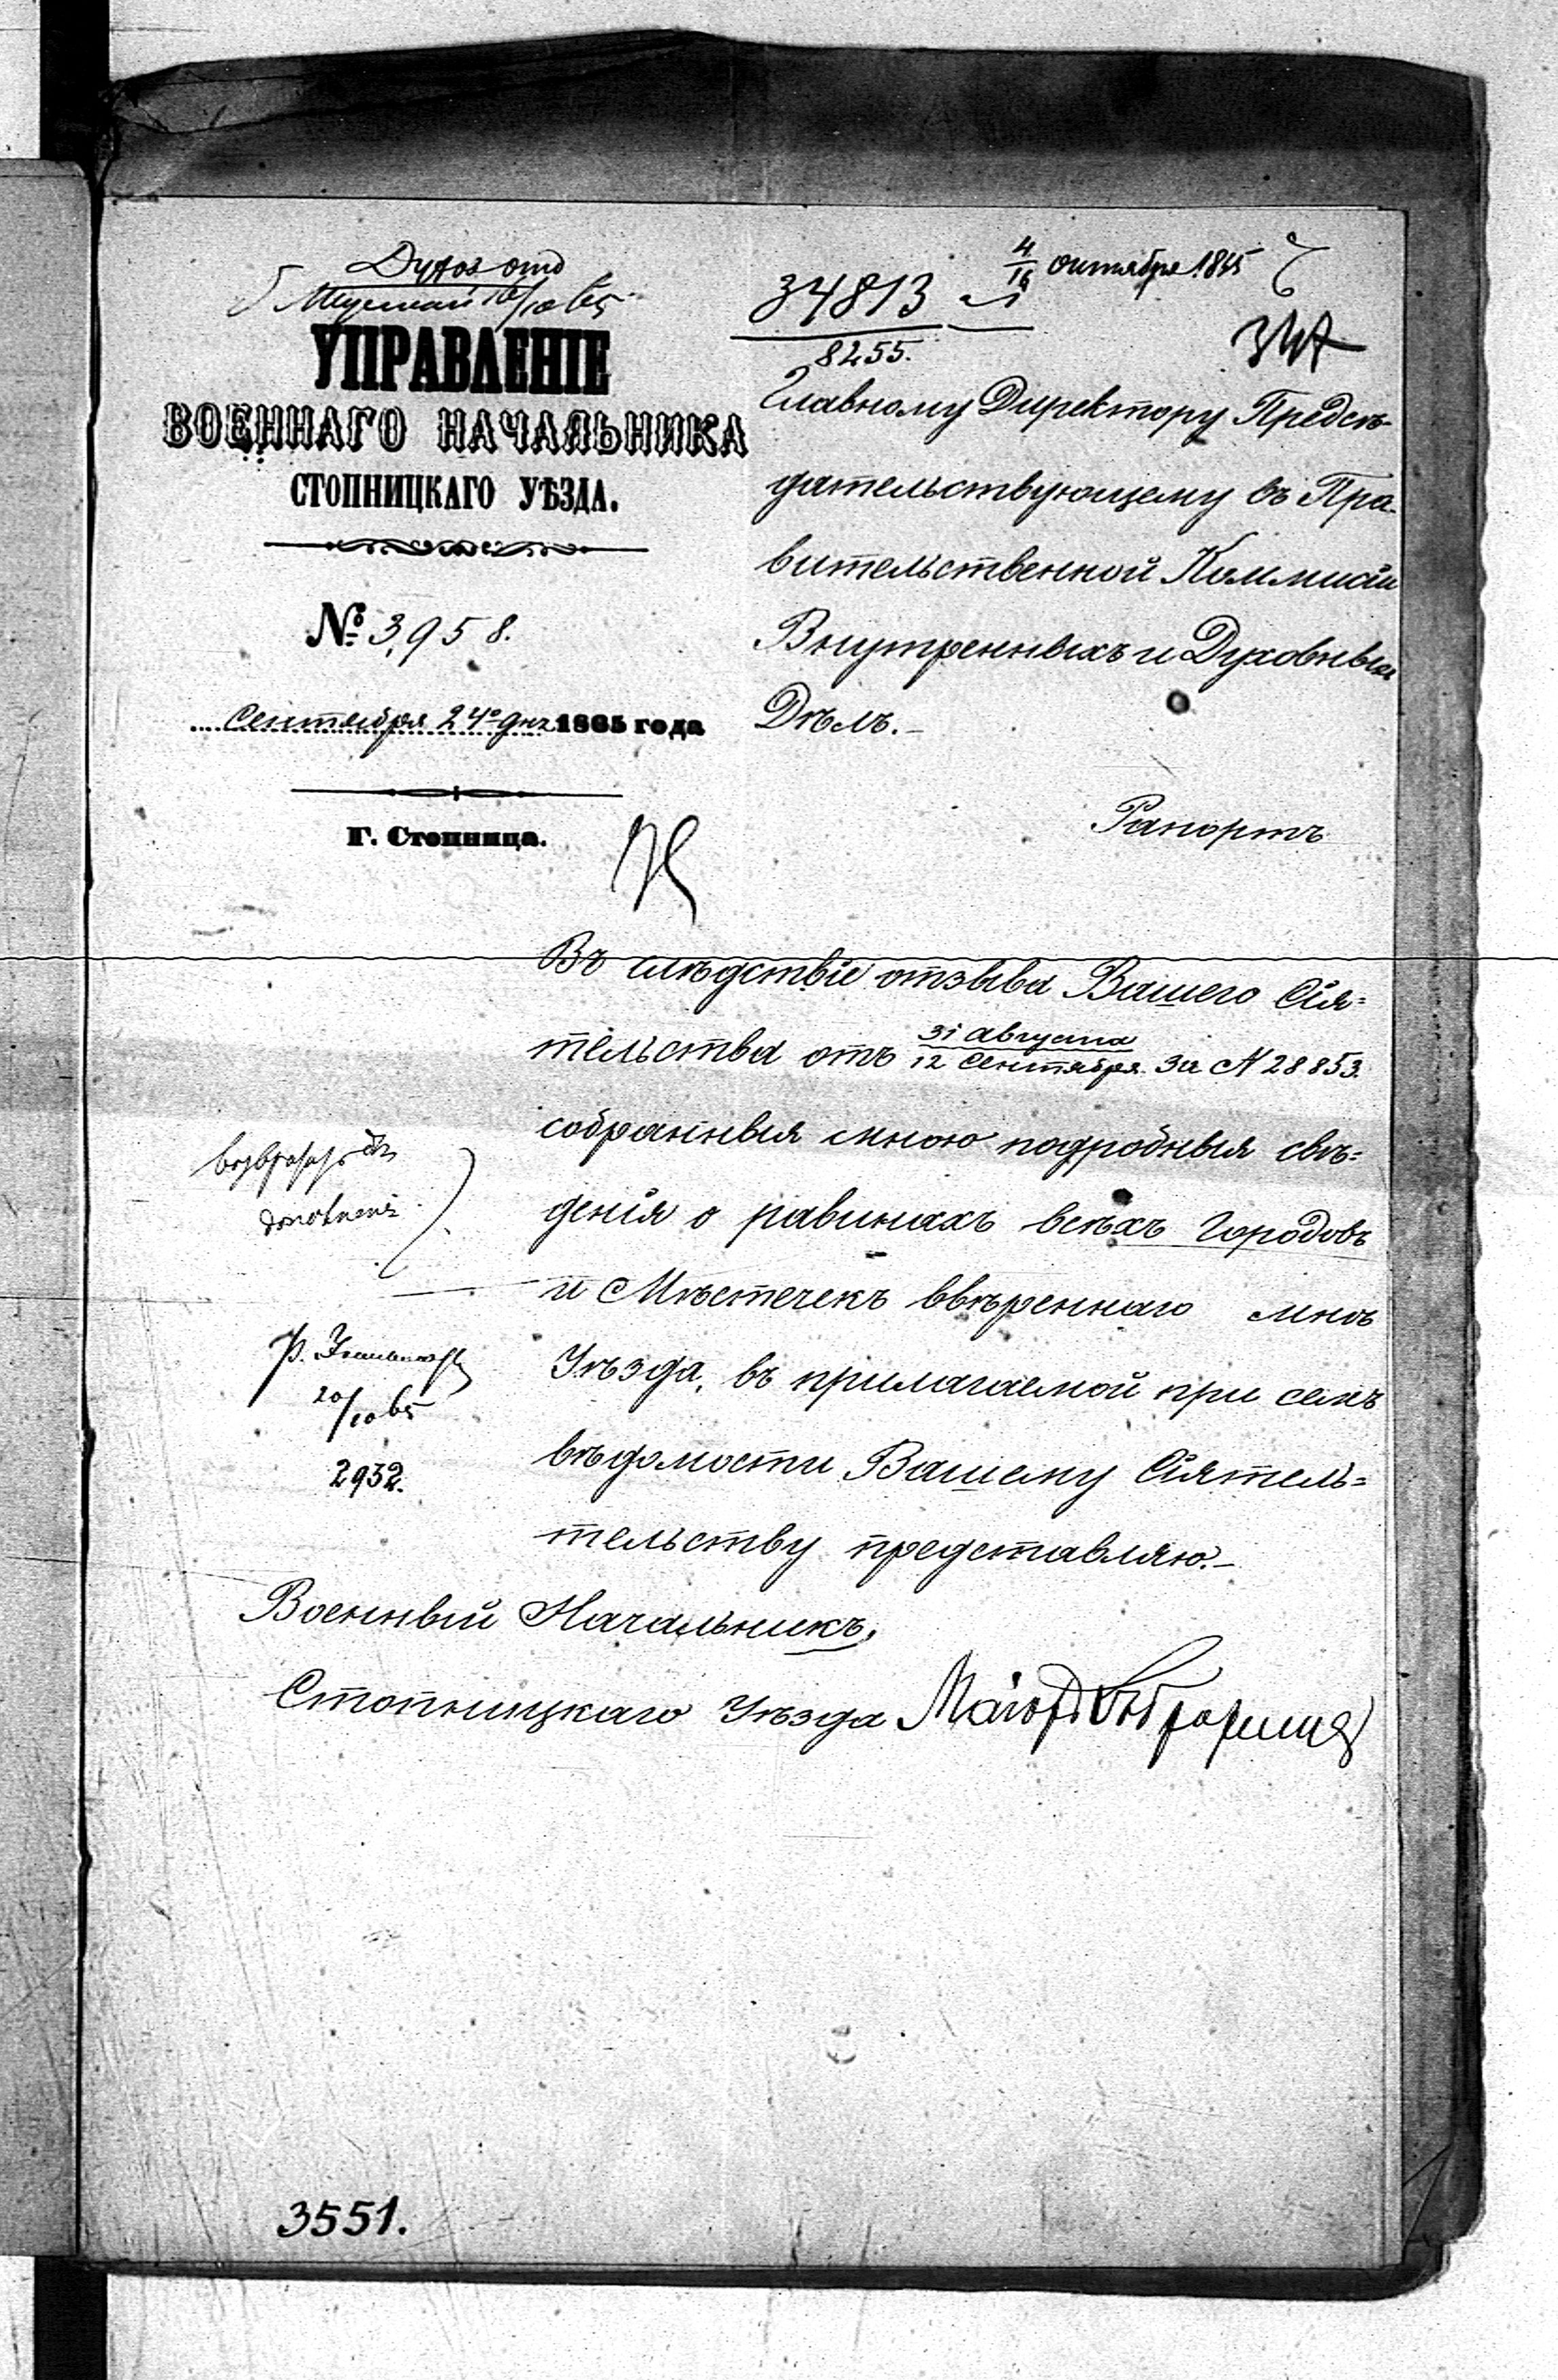 Духов отд
16/10 65
34813
8255.
4/16 октября 1865
347
УПРАВЛЕНІЕ
ВОЕННАГО НАЧАЛЬНИКА
СТОПНИЦКАГО УѢЗДА.
№ 3,958.
Сентября 24го дня 1865 года
Г. Стопница.
Главному Директору Предсѣ-
дательствующему въ Пра-
вительственной Коммисіи
Внутреннихъ и Духовныхъ
Дѣлъ.-
Рапортъ
Въ слѣдствіе отзыва Вашего Сія=
тельства отъ 31 Августа / 12 Сентября за N 28853.
собранныя мною подробныя свѣ=
денія о равинахъ всѣхъ Городовъ
и Мѣстечекъ ввѣреннаго мнѣ
Уѣзда, въ прилагаемой при семъ
вѣдомости Вашему Сіятель=
тельству представляю.-
20/10 65
2932.
Военный Начальникъ,
Стопницкаго Уѣзда Маіоръ
3551.